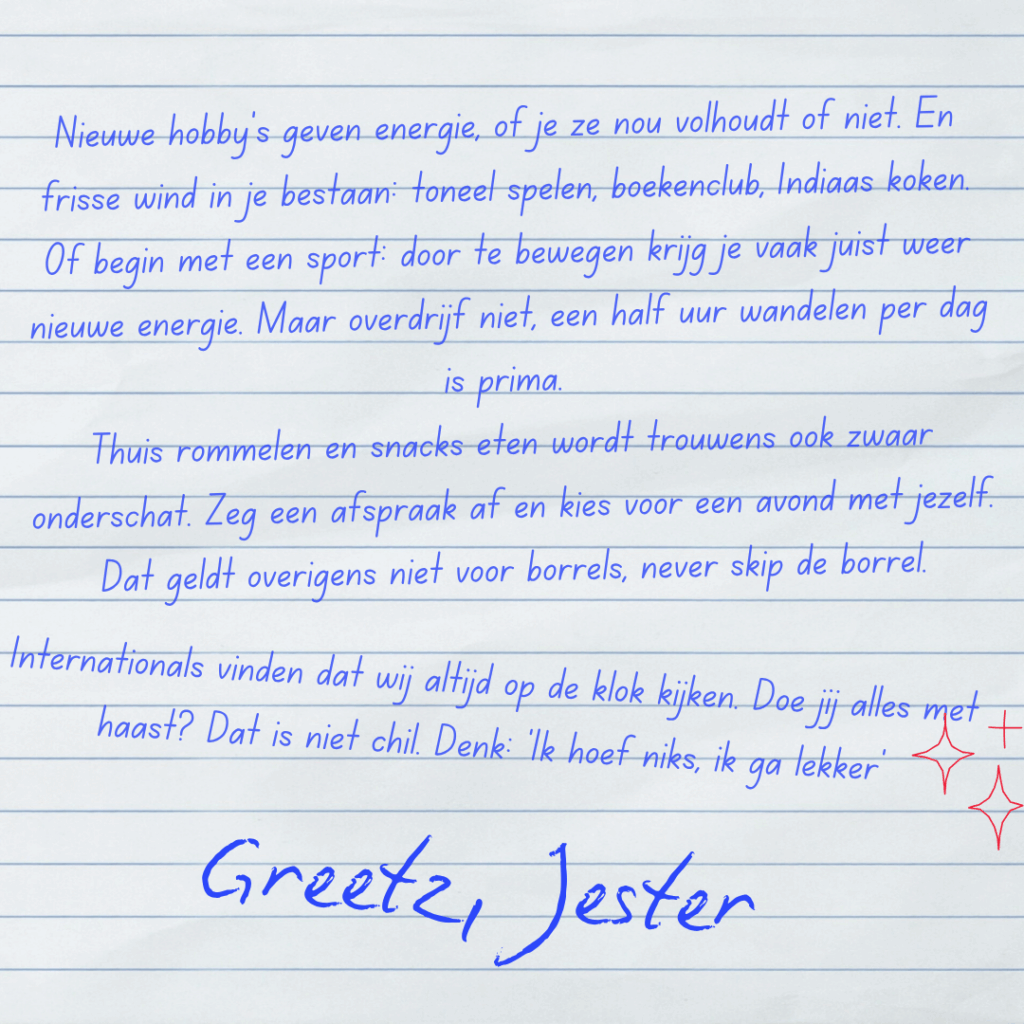 Nieuwe hobby's geven energie, of je ze nou volhoudt of niet. En
frisse wind in je bestaan: toneel spelen, boekenclub, Indiaas koken.
Of begin met een sport: door te bewegen krijg je vaak juist weer
nieuwe energie. Maar overdrijf niet, een half uur wandelen per dag
is prima.
Thuis rommelen en snacks eten wordt trouwens ook zwaar
onderschat. Zeg een afspraak af en kies voor een avond met jezelf.
Dat geldt overigens niet voor borrels, never skip de borrel.
Internationals vinden dat wij altijd op de klok kijken. Doe jij alles met
haast? Dat is niet chil. Denk: 'Ik hoef niks, ik ga lekker'
Greetz, Jester